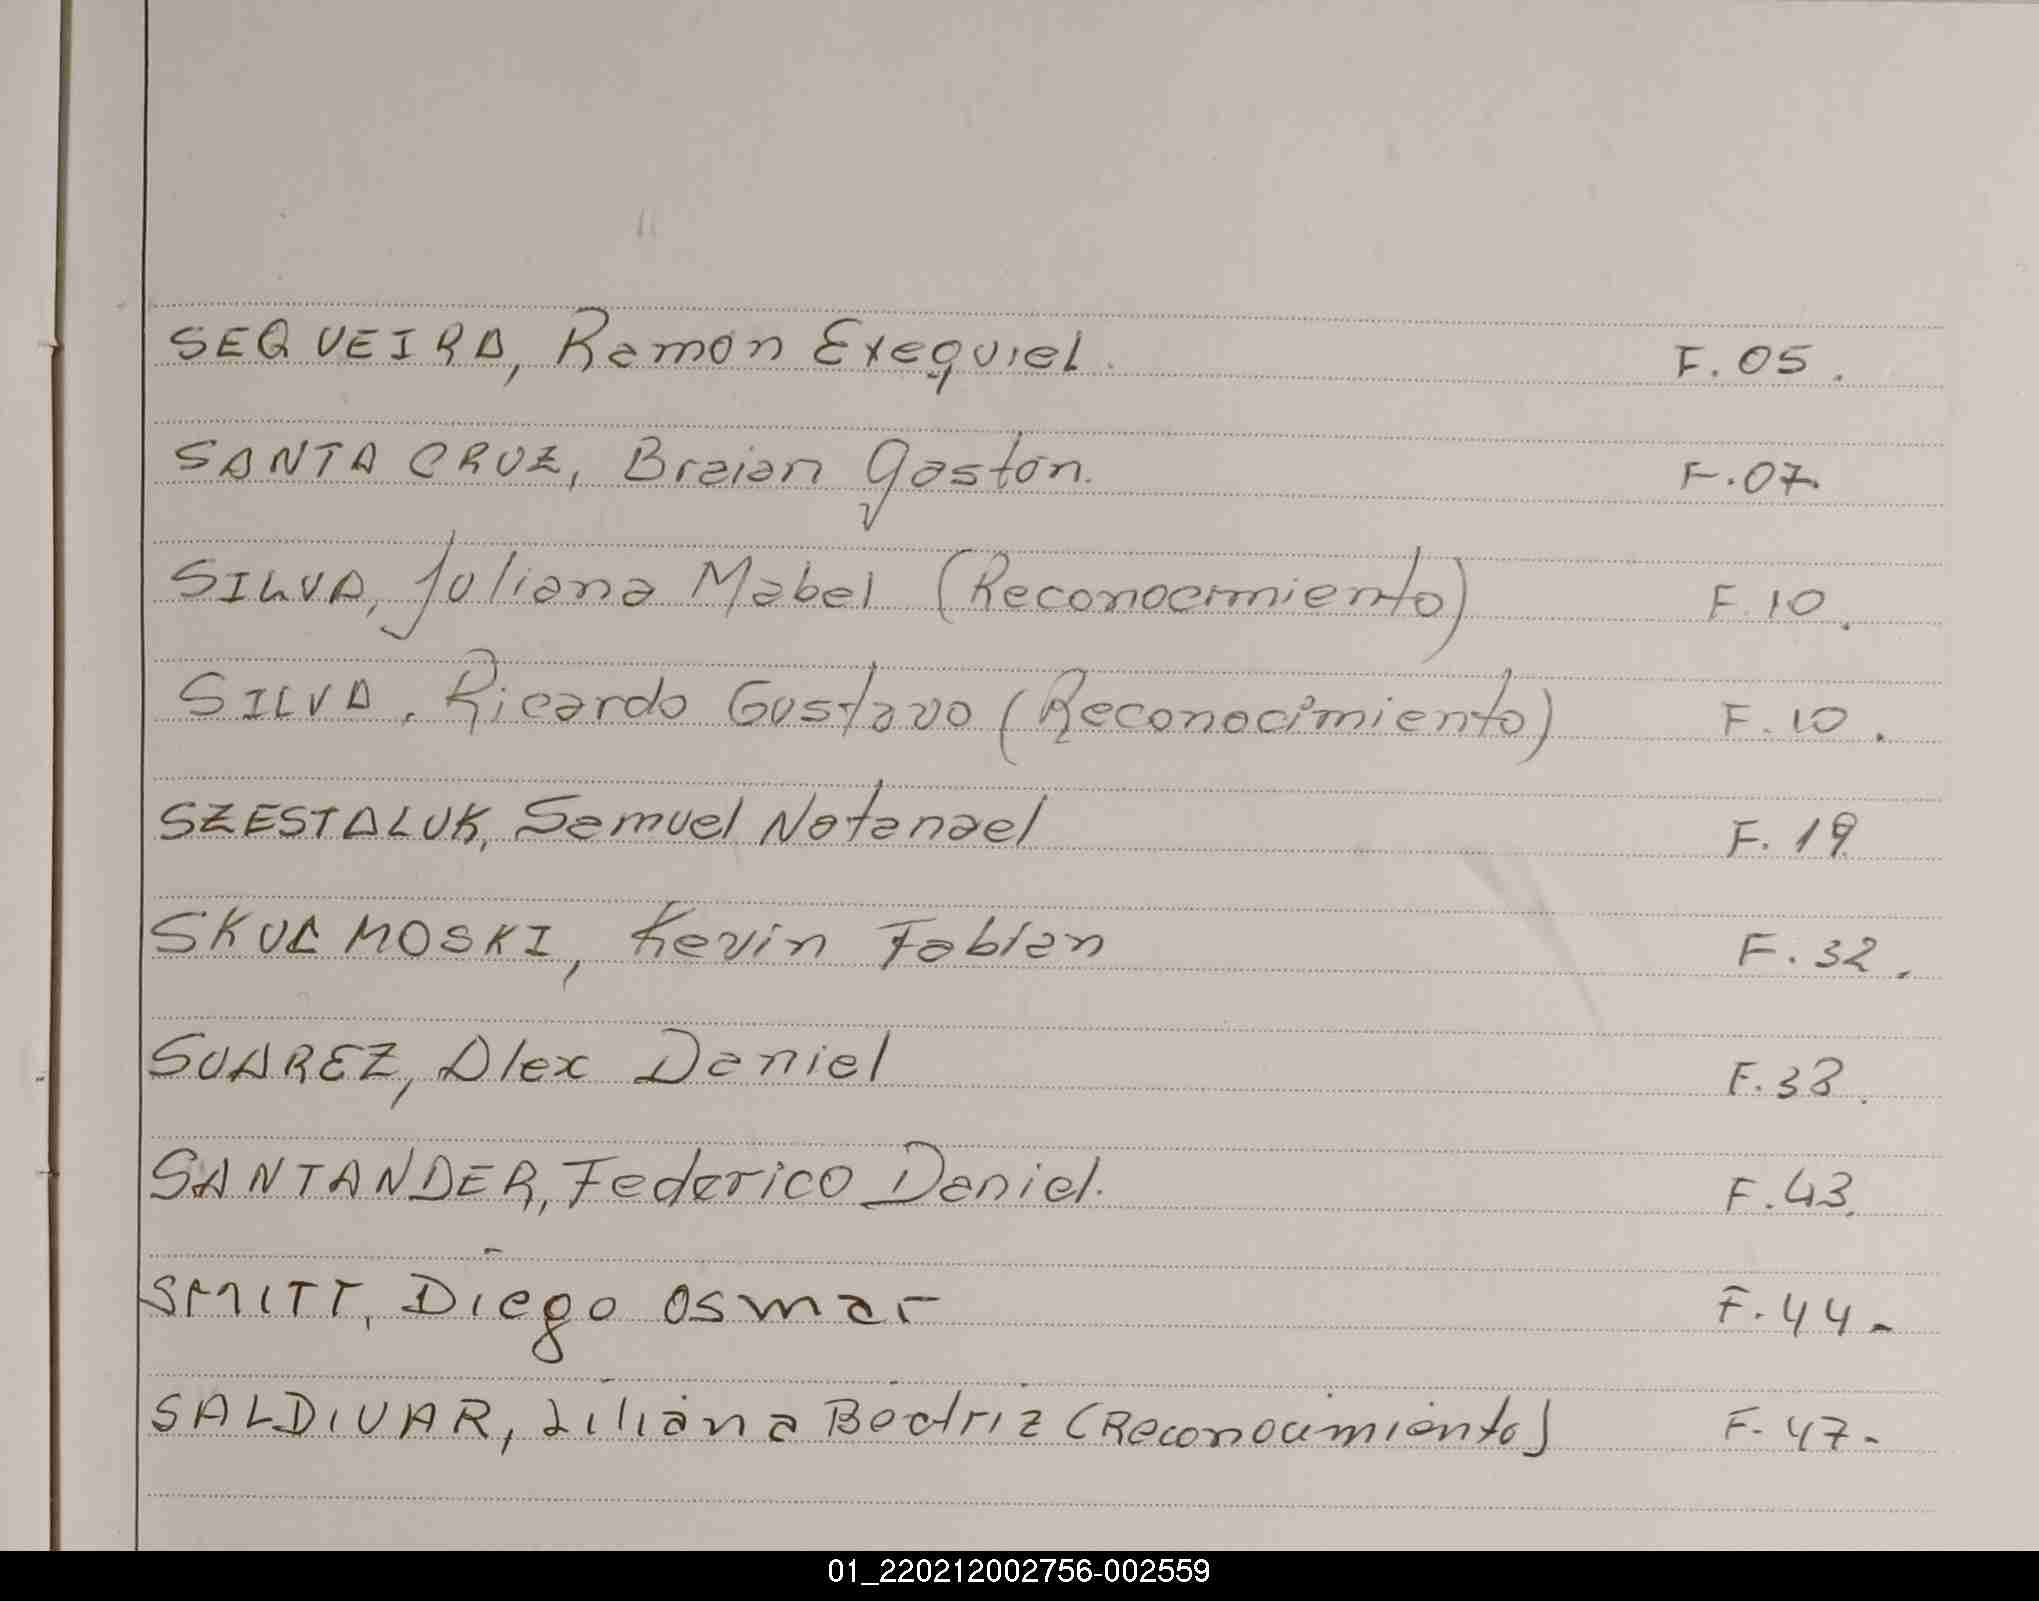 SEQUEIRA, Ramon Exequiel. F. 05.
SANTA CRUZ, Braian Gastón. F. 07.
SILVA, Juliana Mabel (Reconocimiento) F. 10.
SILVA, Ricardo Gustavo (Reconocimiento) F. 10.
SZESTALUK, Samuel Natanael F. 19
SKULMOSKI, Kevin Fabian F. 32.
SUAREZ, Alex Daniel F. 38.
SANTANDER, Federico Daniel. F. 43.
SMITT, Diego Osmar F. 44-
SALDIVAR, Liliana Beatriz (Reconocimiento) F. 47-
01_220212002756-002559